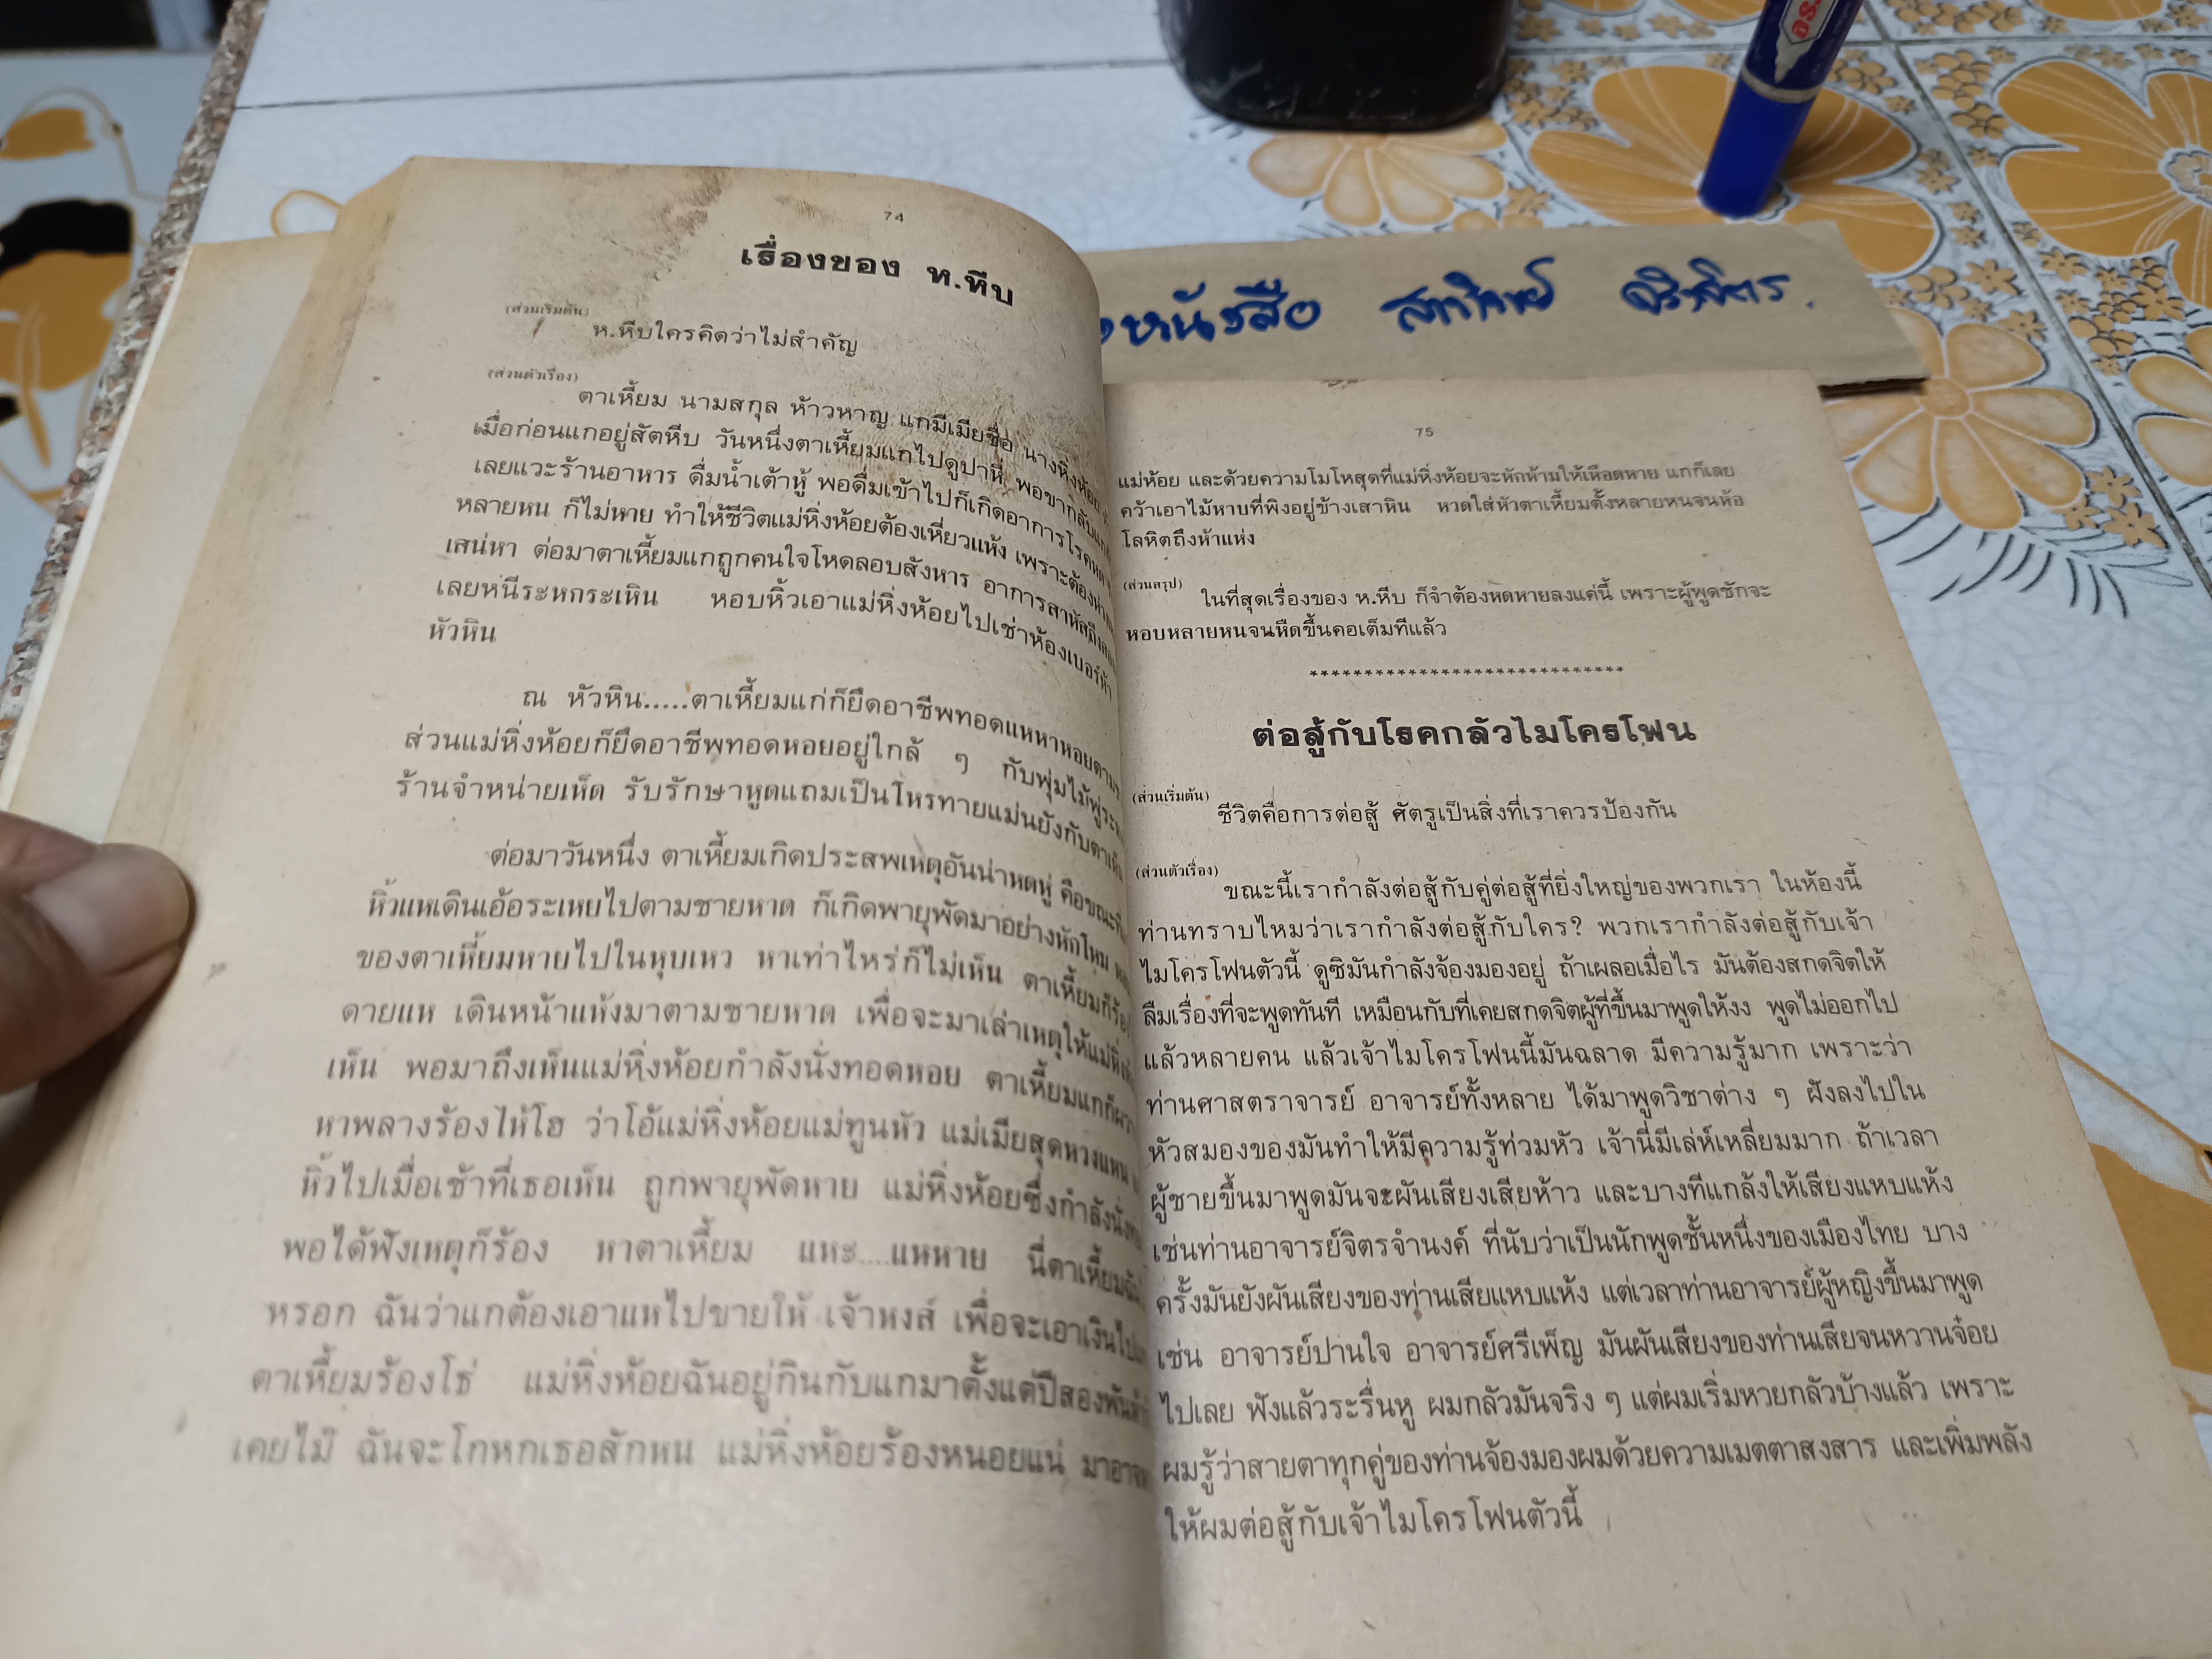 74
เรื่องของ ห.หีบ
(ส่วนเริ่มต้น)
ห.หีบใครคิดว่าไม่สำคัญ
(ส่วนตัวเรื่อง)
ตาเหี้ยม นามสกุล ห้าวหาญ แกมีเมียชื่อ นางหิ่งห้อย
เมื่อก่อนแกอยู่สัตหีบ วันหนึ่งตาเหี้ยมแกไปดูปาหี่ พอขากลับแก
เลยแวะร้านอาหาร ดื่มน้ำเต้าหู้ พอดื่มเข้าไปก็เกิดอาการโรคหด
หลายหน ก็ไม่หาย ทำให้ชีวิตแม่หิ่งห้อยต้องเหี่ยวแห้ง เพราะต้องห่าง
เสน่หา ต่อมาตาเหี้ยมแกถูกคนใจโหดลอบสังหาร อาการสาหัสถึง
เลยหนีระหกระเหิน หอบหิ้วเอาแม่หิ่งห้อยไปเช่าห้องเบอร์ห้า
หัวหิน
ณ หัวหิน.....ตาเหี้ยมแก่ก็ยึดอาชีพทอดแหหาหอยตาม
ส่วนแม่หิ่งห้อยก็ยึดอาชีพทอดหอยอยู่ใกล้ ๆ กับพุ่มไม้พู่ระ
ร้านจำหน่ายเห็ด รับรักษาหูดแถมเป็นโหรทายแม่นยังกับตา
ต่อมาวันหนึ่ง ตาเหี้ยมเกิดประสพเหตุอันน่าหดหู่ คือขณะที่
หิ้วแหเดินเอ้อระเหยไปตามชายหาด ก็เกิดพายุพัดมาอย่างหักโหม
ของตาเหี้ยมหายไปในหุบเหว หาเท่าไหร่ก็ไม่เห็น ตาเหี้ยมก็ร้อง
ดายแห เดินหน้าแห้งมาตามชายหาด เพื่อจะมาเล่าเหตุให้แม่หิ่ง
เห็น พอมาถึงเห็นแม่หิ่งห้อยกำลังนั่งทอดหอย ตาเหี้ยมแกก็ผวา
หาพลางร้องไห้โฮ ว่าโอ้แม่หิ่งห้อยแม่ทูนหัว แม่เมียสุดหวงแหน
หิ้วไปเมื่อเช้าที่เธอเห็น ถูกพายุพัดหาย แม่หิ่งห้อยซึ่งกำลังนั่ง
พอได้ฟังเหตุก็ร้อง หาตาเหี้ยม แหะ....แหหาย นี่ตาเหี้ยมฉัน
หรอก ฉันว่าแกต้องเอาแหไปขายให้ เจ้าหงส์ เพื่อจะเอาเงินไป
ตาเหี้ยมร้องโธ่ แม่หิ่งห้อยฉันอยู่กินกับแกมาตั้งแต่ปีสองพันห้า
เคยไม๊ ฉันจะโกหกเธอสักหน แม่หิ่งห้อยร้องหนอยแน่ มาอาจ
หนังสือ
75
แม่ห้อย และด้วยความโมโหสุดที่แม่หิ่งห้อยจะหักห้ามให้เหือดหาย แกก็เลย
คว้าเอาไม้หาบที่พิงอยู่ข้างเสาหิน หวดใส่หัวตาเหี้ยมตั้งหลายหนจนห้อ
โลหิตถึงห้าแห่ง
(ส่วนสรุป)
ในที่สุดเรื่องของ ห.หีบ ก็จำต้องหดหายลงแค่นี้ เพราะผู้พูดชักจะ
หอบหลายหนจนหืดขึ้นคอเต็มทีแล้ว
*****************************
ต่อสู้กับโรคกลัวไมโครโฟน
(ส่วนเริ่มต้น)
ชีวิตคือการต่อสู้ ศัตรูเป็นสิ่งที่เราควรป้องกัน
(ส่วนตัวเรื่อง)
ขณะนี้เรากำลังต่อสู้กับคู่ต่อสู้ที่ยิ่งใหญ่ของพวกเรา ในห้องนี้
ท่านทราบไหมว่าเรากำลังต่อสู้กับใคร? พวกเรากำลังต่อสู้กับเจ้า
ไมโครโฟนตัวนี้ ดูซิมันกำลังจ้องมองอยู่ ถ้าเผลอเมื่อไร มันต้องสกดจิตให้
ลืมเรื่องที่จะพูดทันที เหมือนกับที่เคยสกดจิตผู้ที่ขึ้นมาพูดให้งง พูดไม่ออกไป
แล้วหลายคน แล้วเจ้าไมโครโฟนนี้มันฉลาด มีความรู้มาก เพราะว่า
ท่านศาสตราจารย์ อาจารย์ทั้งหลาย ได้มาพูดวิชาต่าง ๆ ฝังลงไปใน
หัวสมองของมันทำให้มีความรู้ท่วมหัว เจ้านี่มีเล่ห์เหลี่ยมมาก ถ้าเวลา
ผู้ชายขึ้นมาพูดมันจะผันเสียงเสียห้าว และบางทีแกล้งให้เสียงแหบแห้ง
เช่นท่านอาจารย์จิตรจำนงค์ ที่นับว่าเป็นนักพูดชั้นหนึ่งของเมืองไทย บาง
ครั้งมันยังผันเสียงของท่านเสียแหบแห้ง แต่เวลาท่านอาจารย์ผู้หญิงขึ้นมาพูด
เช่น อาจารย์ปานใจ อาจารย์ศรีเพ็ญ มันผันเสียงของท่านเสียจนหวานจ๋อย
ไปเลย ฟังแล้วระรื่นหู ผมกลัวมันจริง ๆ แต่ผมเริ่มหวยกลัวบ้างแล้ว เพราะ
ผมรู้ว่าสายตาทุกคู่ของท่านจ้องมองผมด้วยความเมตตาสงสาร และเพิ่มพลัง
ให้ผมต่อสู้กับเจ้าไมโครโฟนตัวนี้